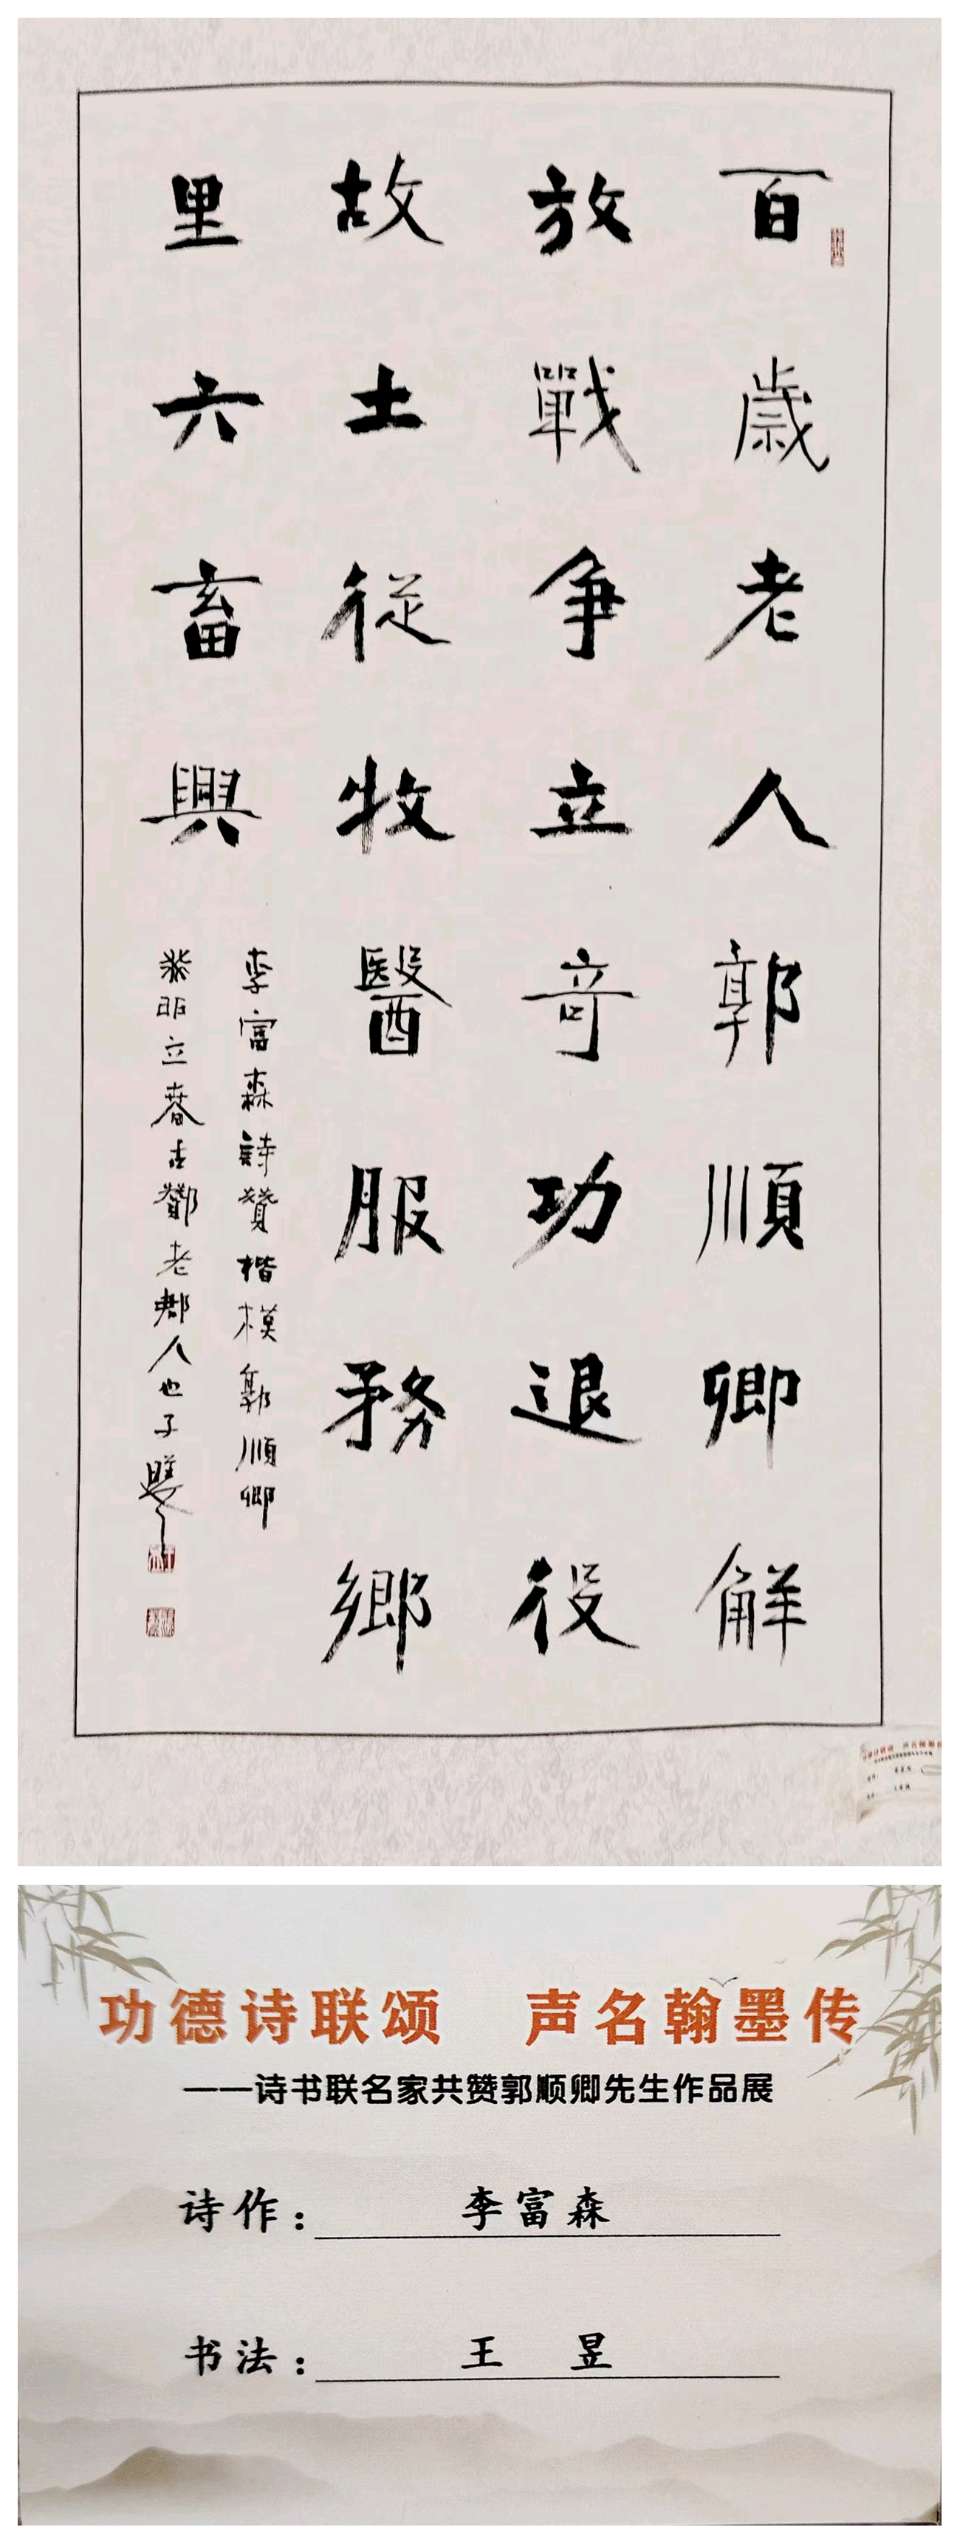 百歲老人郭順卿解
放戰争立奇功退役
故土從牧醫服務鄉
里六畜興
李富森詩贊楷模郭順卿
癸卯立春古鄭老鄰人也子
功德诗联颂 声名翰墨传
——诗书联名家共赞郭顺卿先生作品展
诗作：李富森
书法：王昱